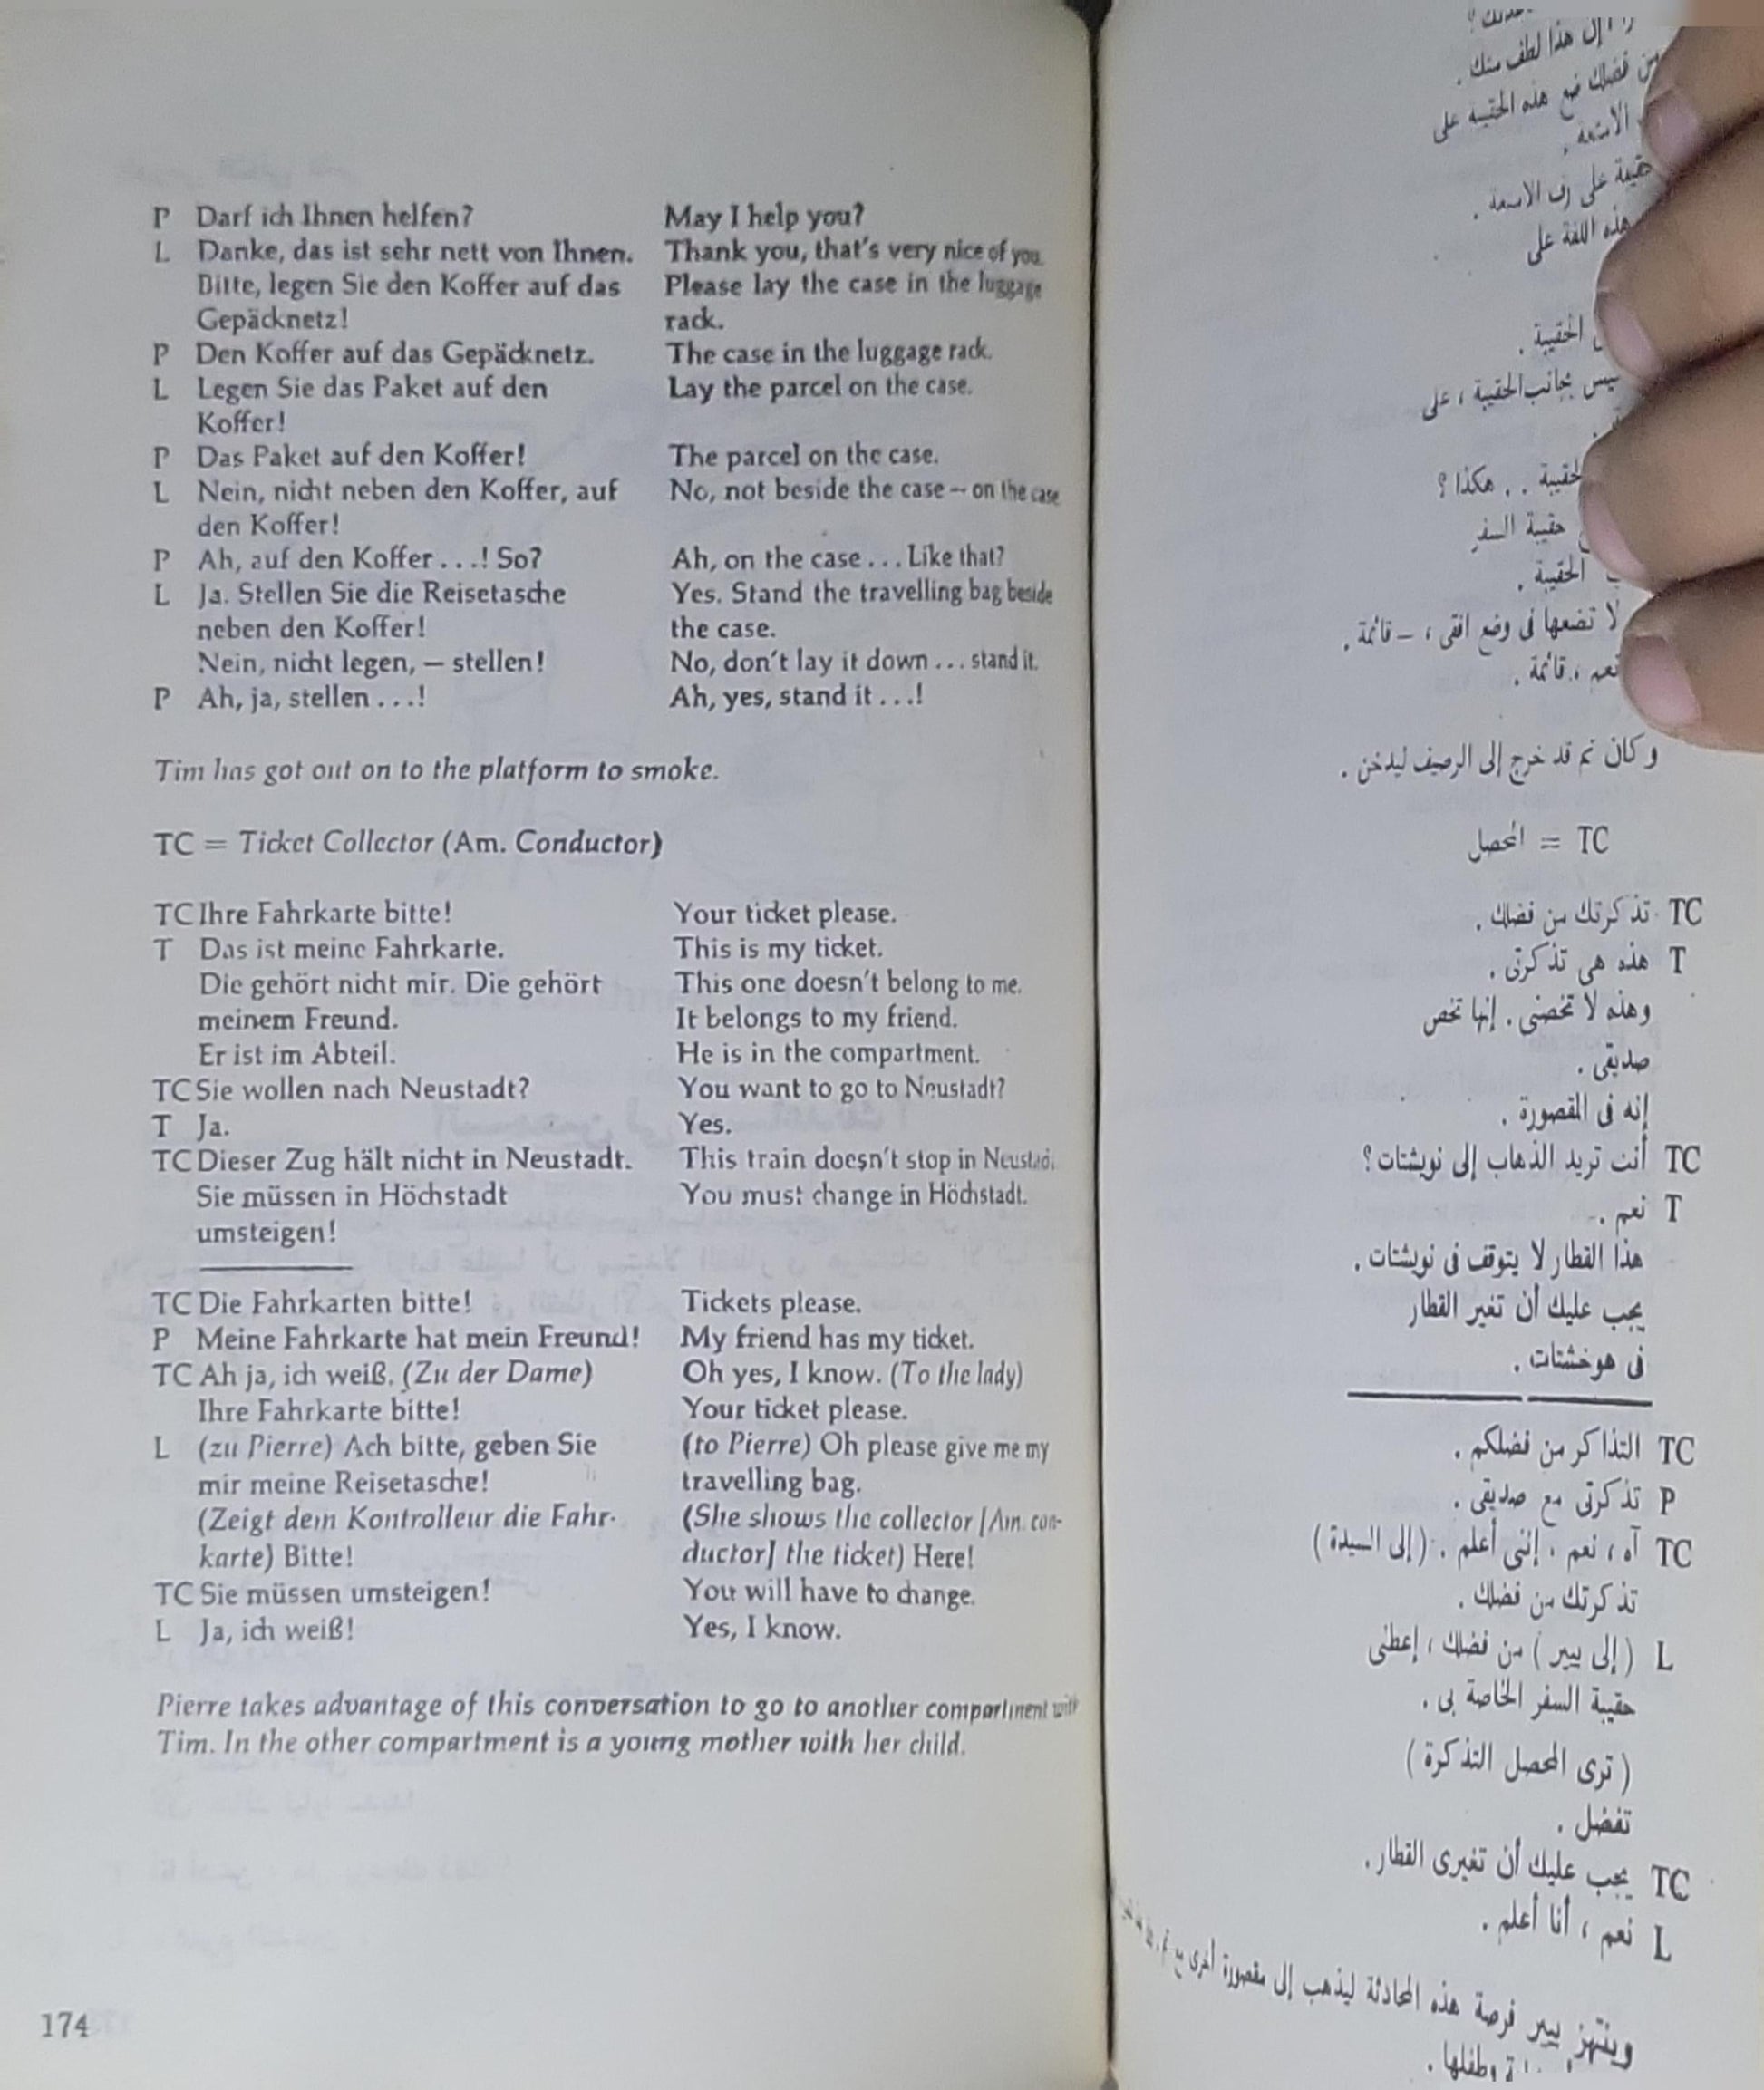 P Darf ich Ihnen helfen? May I help you?
L Danke, das ist sehr nett von Ihnen. Thank you, that's very nice of you.
Bitte, legen Sie den Koffer auf das Please lay the case in the luggage
Gepäcknetz! rack.
P Den Koffer auf das Gepäcknetz. The case in the luggage rack.
L Legen Sie das Paket auf den Lay the parcel on the case.
Koffer!
P Das Paket auf den Koffer! The parcel on the case.
L Nein, nicht neben den Koffer, auf No, not beside the case – on the case
den Koffer!
P Ah, auf den Koffer . . .! So? Ah, on the case . . . Like that?
L Ja. Stellen Sie die Reisetasche Yes. Stand the travelling bag beside
neben den Koffer! the case.
Nein, nicht legen, – stellen! No, don't lay it down . . . stand it.
P Ah, ja, stellen . . .! Ah, yes, stand it . . .!
Tim has got out on to the platform to smoke.
TC = Ticket Collector (Am. Conductor)
TC Ihre Fahrkarte bitte! Your ticket please.
T Das ist meine Fahrkarte. This is my ticket.
Die gehört nicht mir. Die gehört This one doesn't belong to me.
meinem Freund. It belongs to my friend.
Er ist im Abteil. He is in the compartment.
TC Sie wollen nach Neustadt? You want to go to Neustadt?
T Ja. Yes.
TC Dieser Zug hält nicht in Neustadt. This train doesn't stop in Neustadt.
Sie müssen in Höchstadt You must change in Höchstadt.
umsteigen!
TC Die Fahrkarten bitte! Tickets please.
P Meine Fahrkarte hat mein Freund! My friend has my ticket.
TC Ah ja, ich weiß. (Zu der Dame) Oh yes, I know. (To the lady)
Ihre Fahrkarte bitte! Your ticket please.
L (zu Pierre) Ach bitte, geben Sie (to Pierre) Oh please give me my
mir meine Reisetasche! travelling bag.
(Zeigt dem Kontrolleur die Fahr- (She shows the collector [Am. con-
karte) Bitte! ductor] the ticket) Here!
TC Sie müssen umsteigen! You will have to change.
L Ja, ich weiß! Yes, I know.
Pierre takes advantage of this conversation to go to another compartment with
Tim. In the other compartment is a young mother with her child.
174
إن هذا لطف منك .
من فضلك ضع هذه الحقيبة على
الأمتعة .
على رف الأمتعة .
هذه اللفة على
الحقيبة .
ليس بجانب الحقيبة ، على
. . هكذا ؟
حقيبة السفر
الحقيبة .
لا تضعها فى وضع افقى ، – قائمة .
نعم ، قائمة .
وكان تم قد خرج إلى الرصيف ليدخن .
TC = المحصل
TC تذكرتك من فضلك .
T هذه هى تذكرتى .
وهذه لا تخصنى . إنها تخص
صديقى .
إنه فى المقصورة .
TC أنت تريد الذهاب إلى نويشتات ؟
T نعم .
هذا القطار لا يتوقف فى نويشتات .
يجب عليك أن تغير القطار
فى هوخشتات .
TC التذاكر من فضلكم .
P تذكرتى مع صديقى .
TC آه ، نعم . إننى أعلم . (إلى السيدة )
تذكرتك من فضلك .
L ( إلى بيير ) من فضلك ، إعطنى
حقيبة السفر الخاصة بى .
( ترى المحصل التذكرة )
تفضل .
TC يجب عليك أن تغيرى القطار .
L نعم ، أنا أعلم .
وينتهز بيير فرصة هذه المحادثة ليذهب إلى مقصورة أخرى مع
وطفلها .